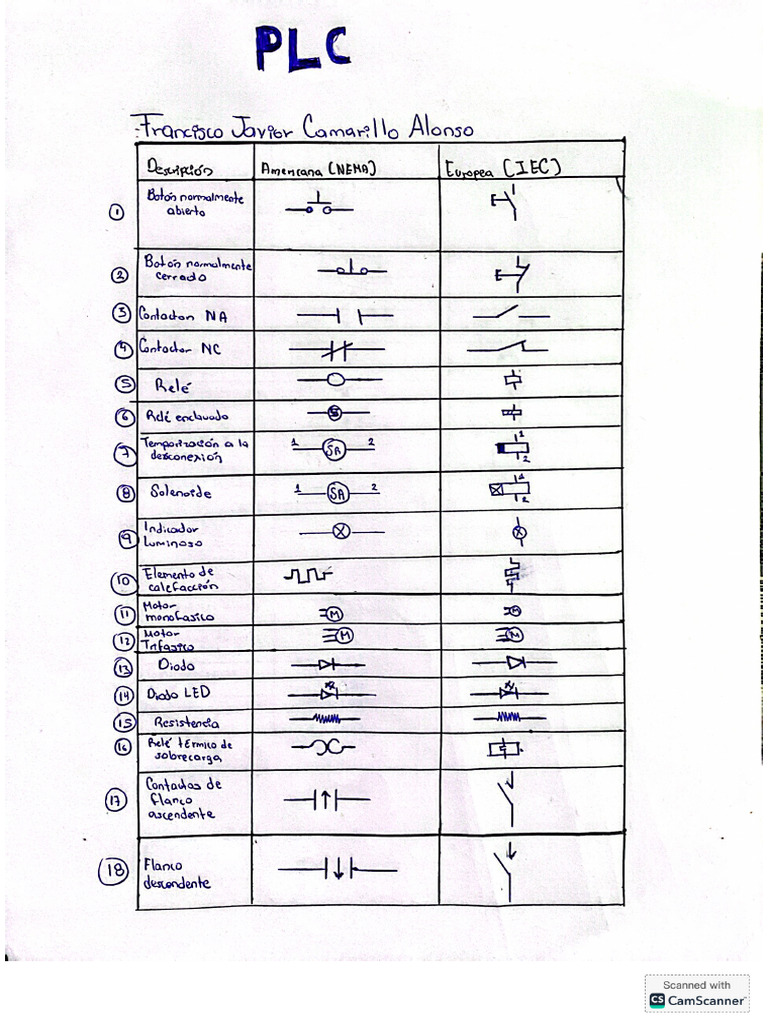 PLC
Francisco Javier Camarillo Alonso
Descripción Americana (NEMA) Europea (IEC)
1 Botón normalmente
abierto
2 Botón normalmente
cerrado
3 Contactor NA
4 Contactor NC
5 Relé
6 Relé enclavado
7 Temporización a la 1 SR 2 1
desconexión 2
8 Solenoide 1 SR 2 1
2
9 Indicador
Luminoso
10 Elemento de
calefacción
11 Motor M M
monofasico
12 Motor M M
Trifasico
13 Diodo
14 Diodo LED
15 Resistencia
16 Relé térmico de
sobrecarga
17 Contactos de
flanco
ascendente
18 Flanco
descendente
Scanned with
CS CamScanner